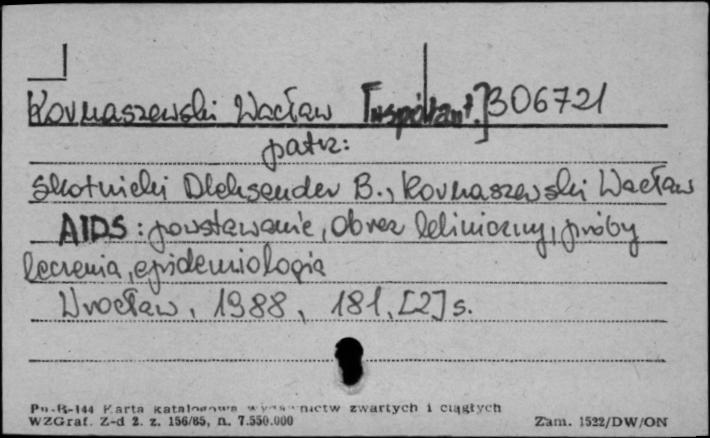 Kornaszewski Wacław [współaut.] 306721
patrz:
Skotnicki Aleksander B., Kornaszewski Wacław
AIDS : powstawanie, obraz kliniczny, próby
leczenia, epidemiologia
Wrocław, 1988, 181, [2] s.
Pu-B-144 Karta katalogowa wydawnictw zwartych i ciągłych
WZGraf. Z-d 2. z. 156/85, n. 7.550.000 Zam. 1522/DW/ON